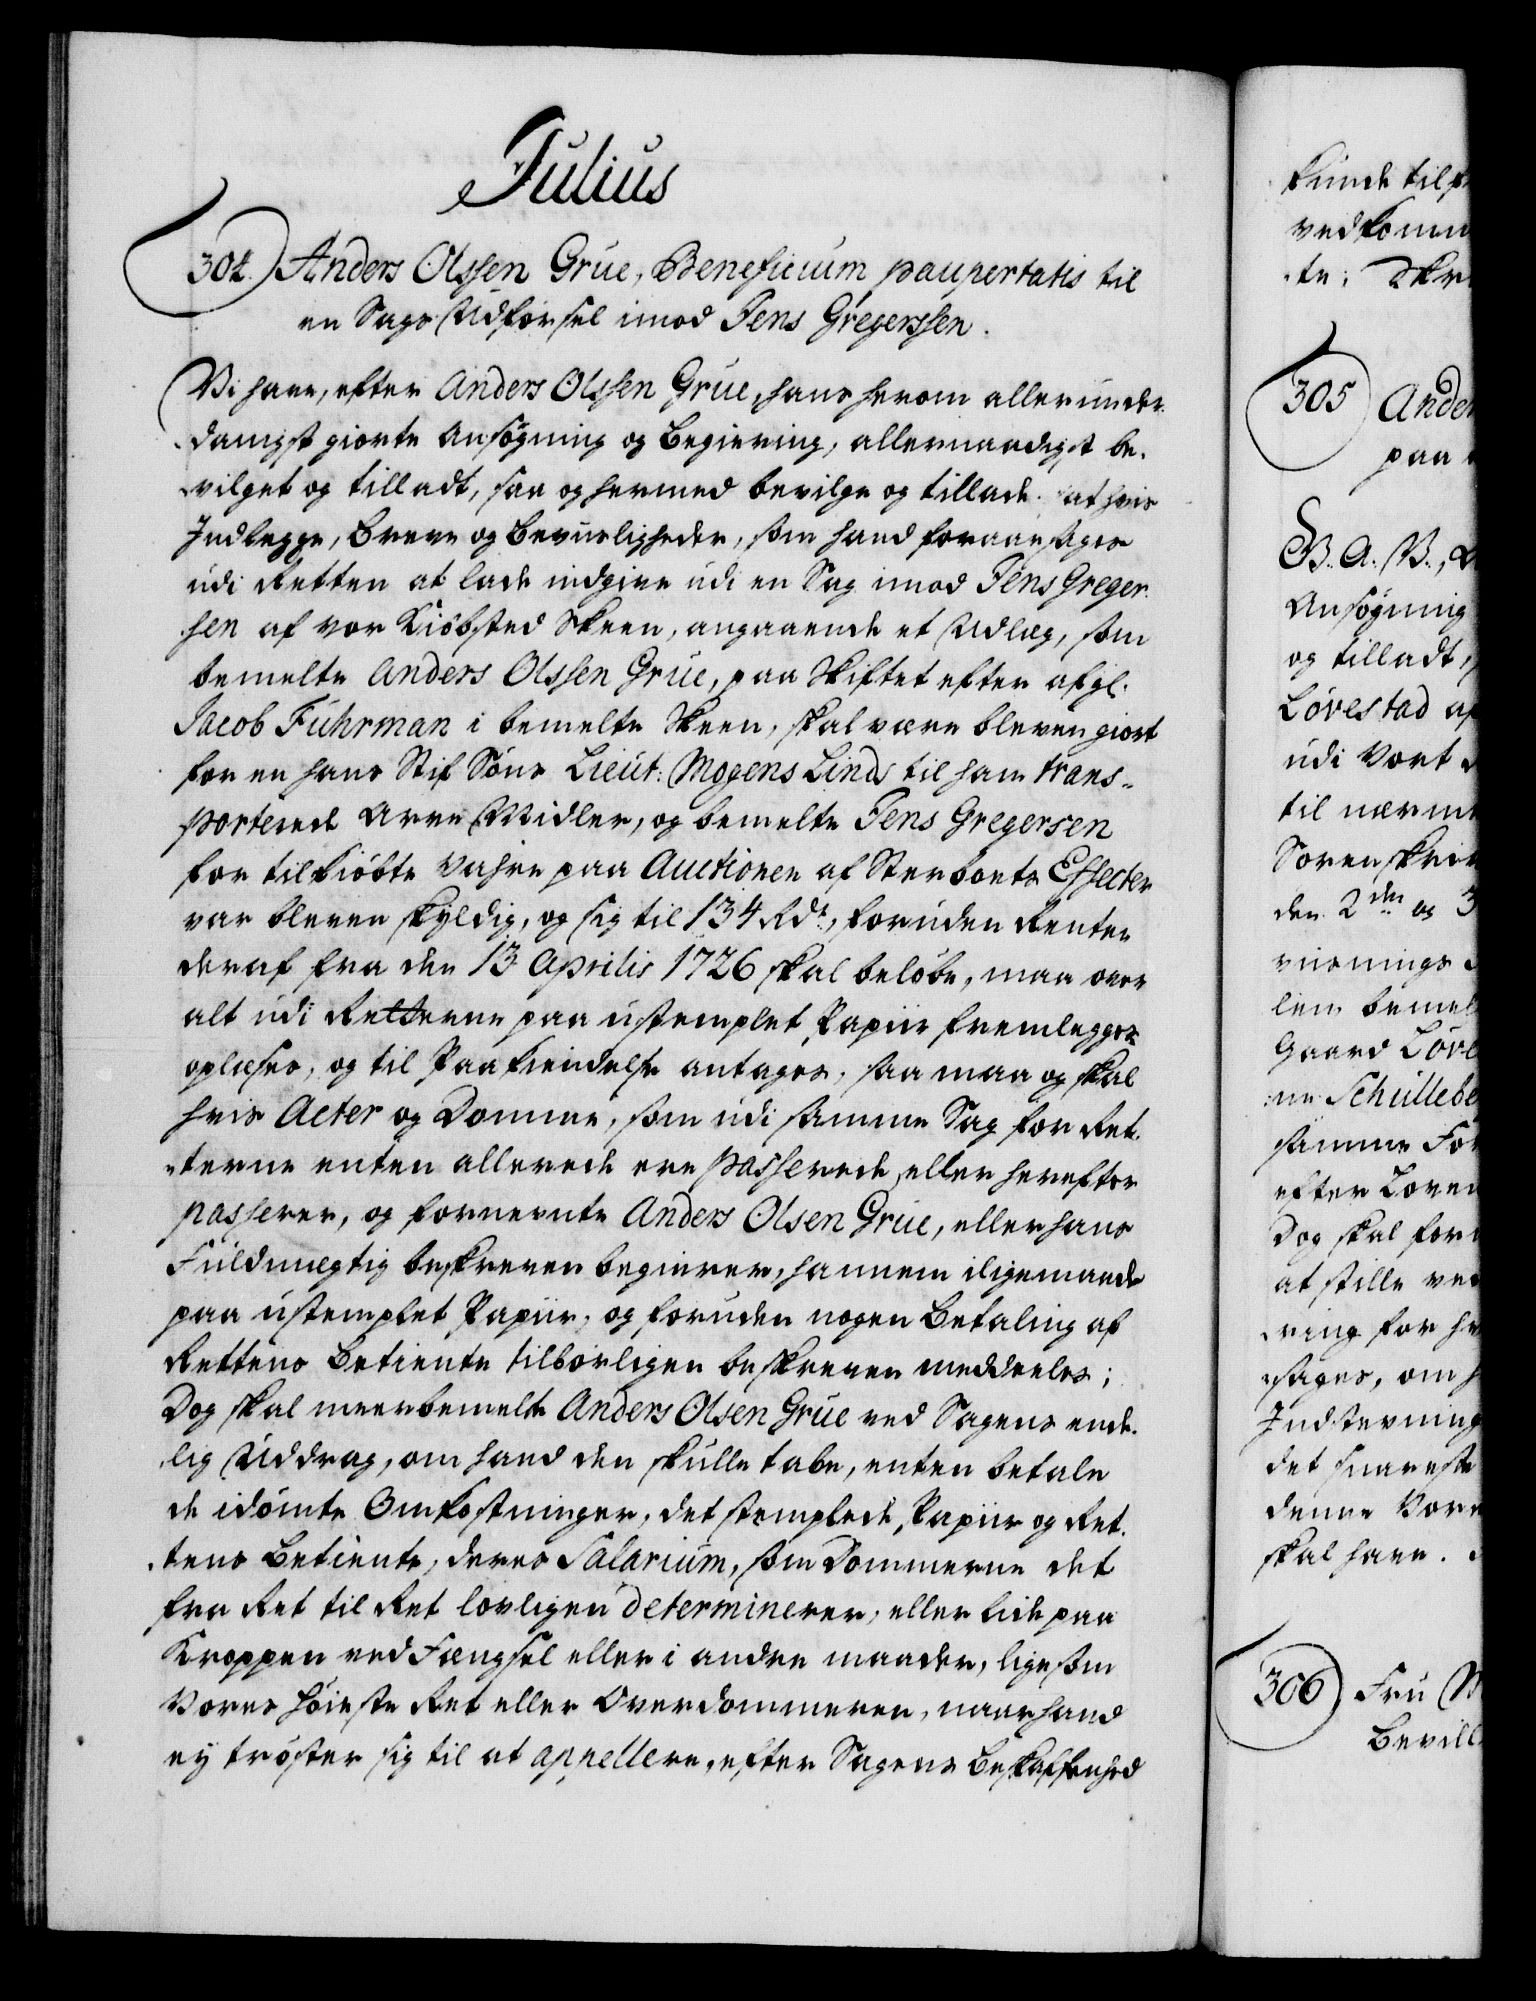 Julius
304. Anders Olssen Grue, Beneficium paupertatis til
en Sags Udførsel imod Jens Gregerssen.
Vi have, efter Anders Olssen Grue, hans herom allerunder-
danigst giorte Ansøgning og Begiering, allernaadigst be-
vilget og tilladt, saa og hermed bevilge og tillade. at hvis
Indlegge, Breve og Beviisligheder, som hand foraarsages
udi Retten at lade indgive udi en Sag imod Jens Greger-
sen af vor Kiøbsted Skeen, angaaende et Udlæg, som
bemelte Anders Olssen Grue, paa Skiftet efter afgl.
Jacob Fuhrman i bemelte Skeen, skal være bleven giort
for en hans Stif Søns Lieut: Mogens Linds til ham trans-
porterede Arve Midler, og bemelte Jens Gregersen
for tilkiøbte Vahre paa Auctionen af Sterboets Effecter
var bleven skyldig, og sig til 134 Rdr, foruden Renter
deraf fra den 13 Aprilis 1726 skal beløbe, maa over
alt udi Retterne paa ustemplet Papiir fremlegges
oplæses, og til Paakiendelse antages, saa maa og skal
hvis Acter og Domme, som udi samme Sag for Ret-
terne enten allerede ere passerede, eller herefter
passerer, og fornevnte Anders Olsen Grue, eller hans
Fuldmegtig beskreven begierer, hannem iligemaade
paa ustemplet Papiir, og foruden nogen Betaling af
Rettens Betiente tilbørligen beskreven meddeeles;
Dog skal meerbemelte Anders Olsen Grue ved Sagens ende-
lig Uddrag, om hand den skulle tabe, enten betale
de idømte Omkostninger, det stemplede Papiir og Ret-
tens Betiente, deres Salarium, som Dommerne det
fra Ret til Ret lovligen determinerer, eller lide paa
Kroppen ved Fængsel eller i andre maader, ligesom
Vores Høieste Ret eller Overdommeren, naar hand
ej trøster sig til at appellere, efter Sagens Beskaffenhed
kunde til
vedkomm
te; Skr
305 Ander
paa
G. A. V.,
Ansøgning
og tilladt,
Løvestad af
udi Vort
til nærme
Soren skri
den 2den og 3
viisnings
len bemel
Gaard Løve
ne Schullebe
samme For
efter Loven
Dog skal for
at stille ve
ring for
sages, om
Indstevning
det snareste
denne Vore
skal have.
306 Fru
Bevill